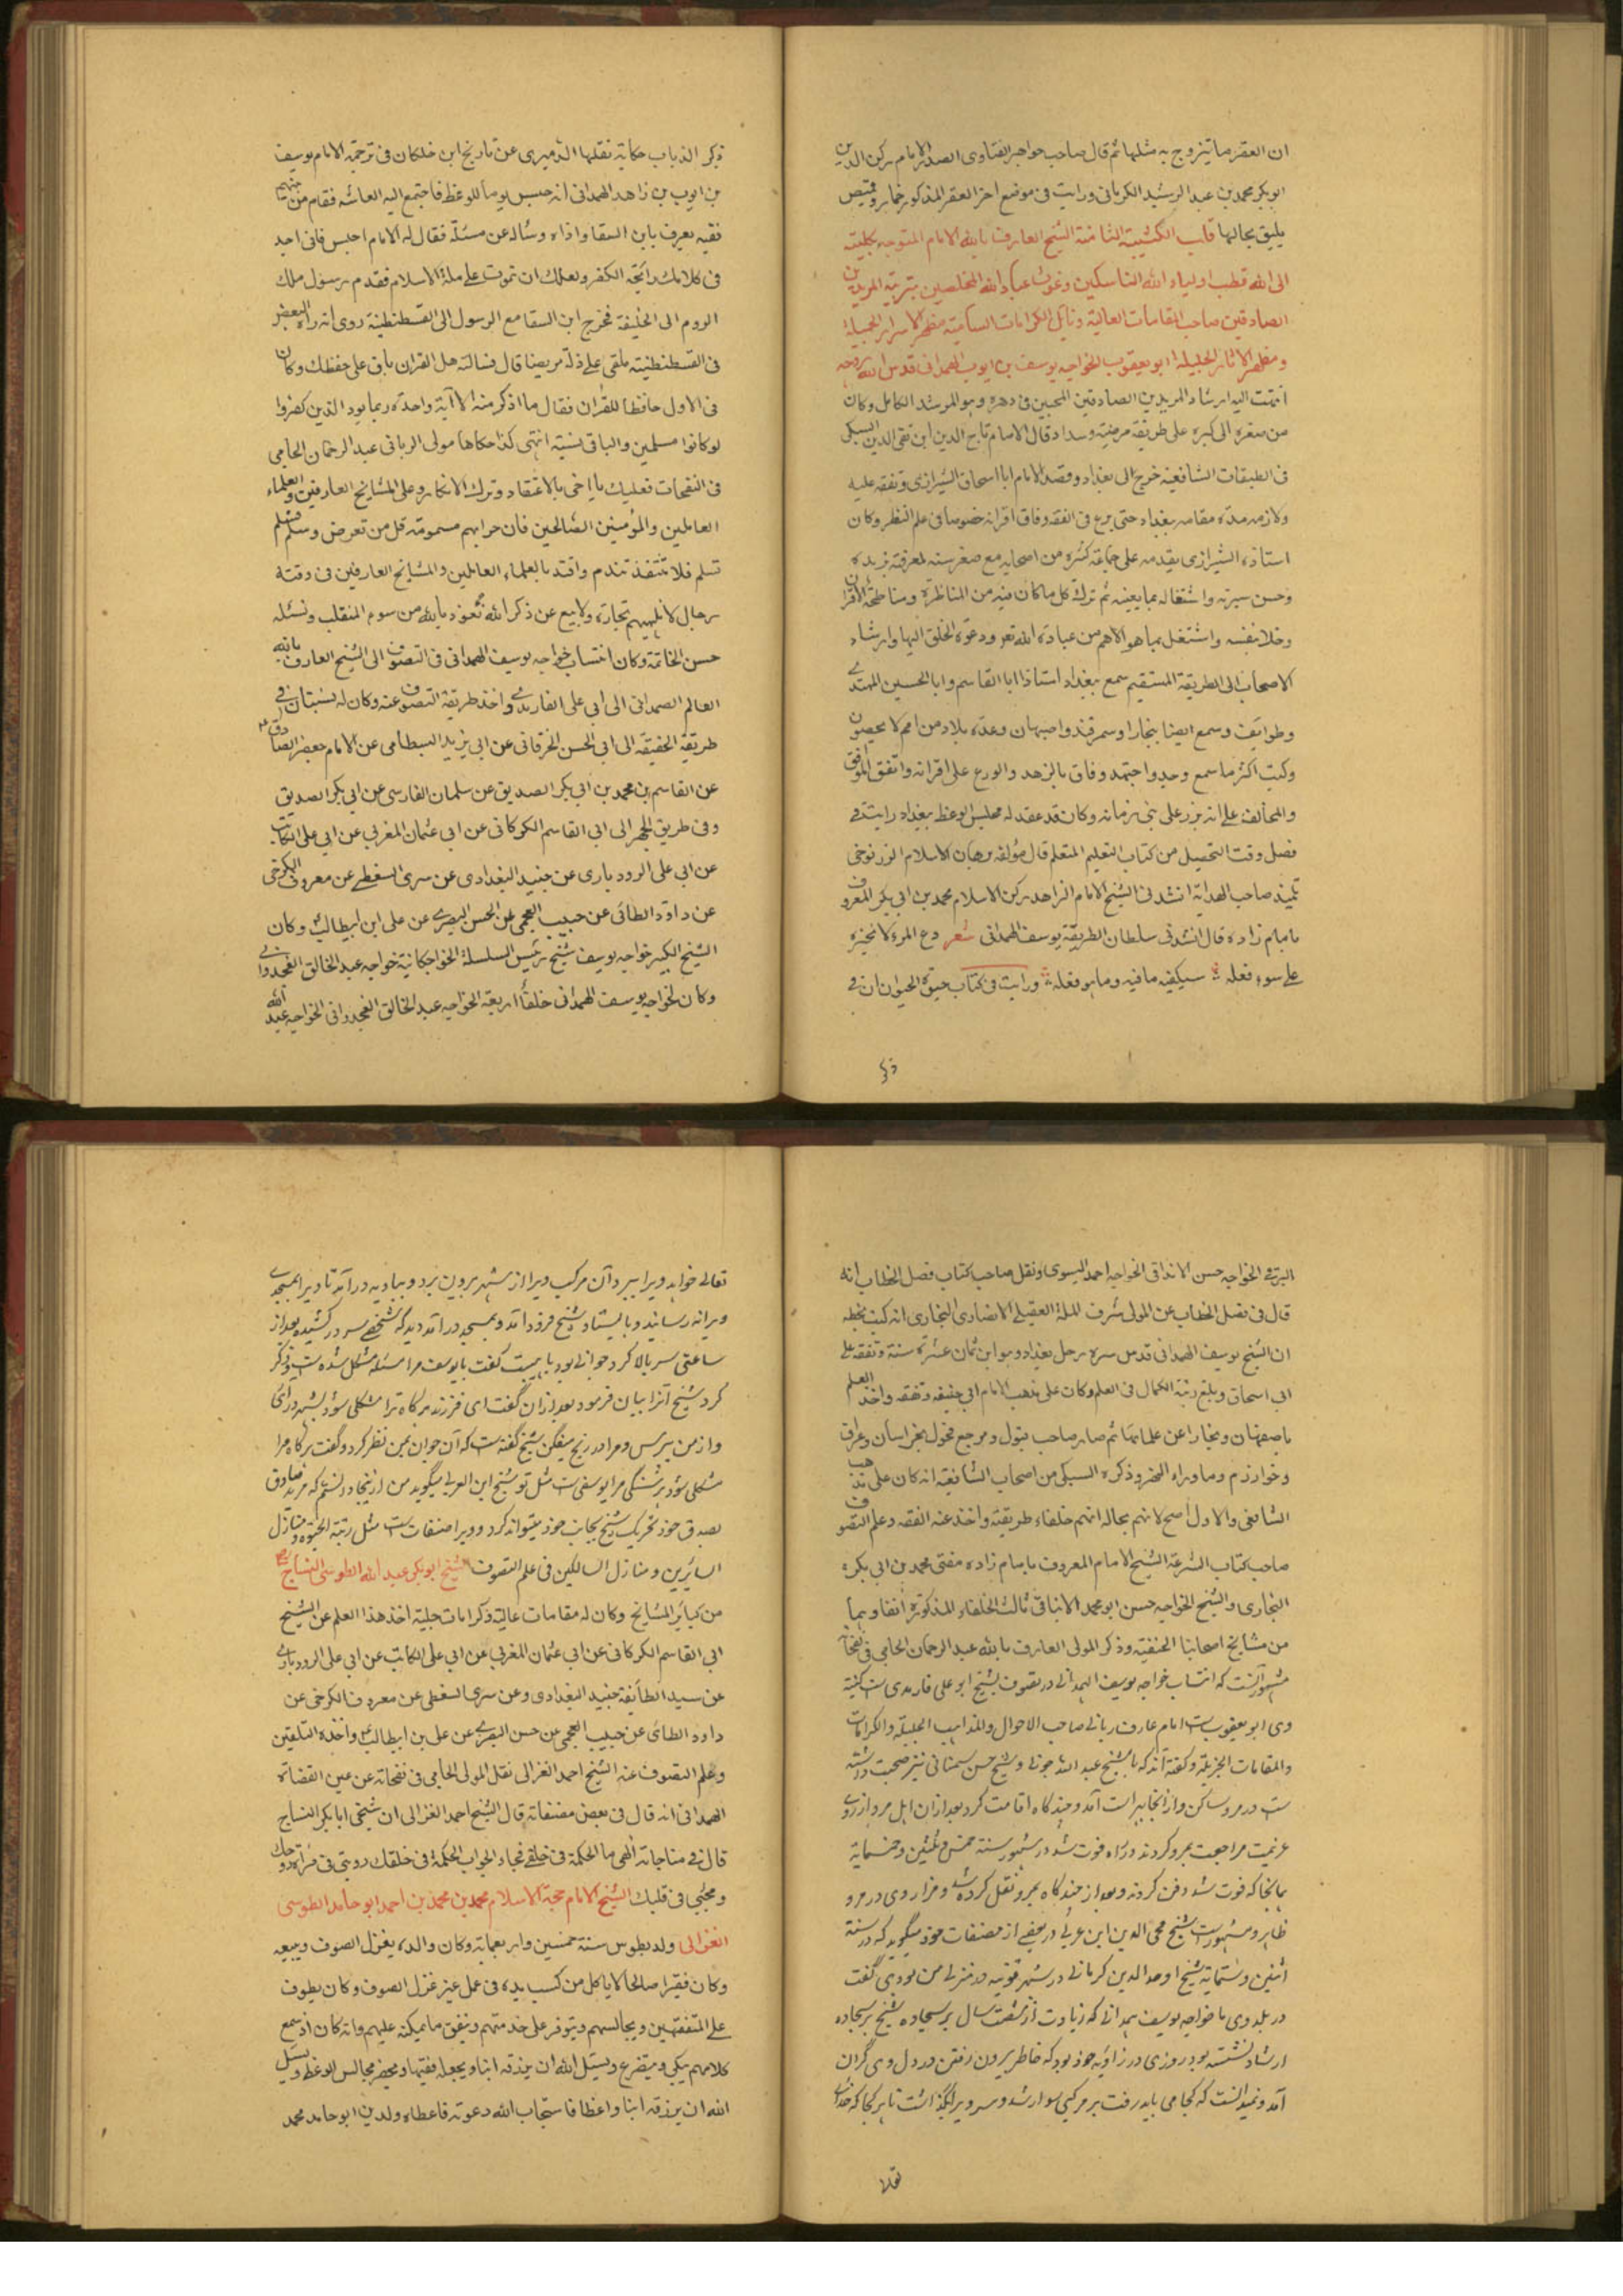 ان العقر ما يتزوج به مثلها ثم قال صاحب جواهر الفتاوى الصدر الامام ركن الدين
ابو بكر محمد بن عبد الرشيد الكرمانى ورايت فى موضع اخر العقر المذكور خمار وقميص
يليق بحالها قلب الكتيبة الثامنة الشيخ العارف بالله الامام المتوجه بكليته
الى الله قطب اولياء الله الناسكين وغوث عباد الله المخلصين بتربية المريدين
الصادقين صاحب المقامات العالية ونائل الكرامات السامية مظهر الاسرار الجميلة
ومظهر الاثار الجليلة ابو يعقوب الخواجه يوسف بن ايوب الهمدانى قدس الله روحه
انتهت اليه ارشاد المريدين الصادقين المحبين فى دهره وهو المرشد الكامل وكان
من صغره الى كبره على طريقة مرضية وسداد قال الامام تاج الدين ابن تقى الدين السبكى
فى الطبقات الشافعية خرج الى بغداد وقصد الامام ابا اسحاق الشيرازى وتفقه عليه
ولازمه مدة مقامه ببغداد حتى برع فى الفقه وفاق اقرانه خصوصا فى علم النظر وكان
استاذه الشيرازى يقدمه على جماعة كثيرة من اصحابه مع صغر سنه لمعرفته بزهده
وحسن سيرته واشتغاله بما يعنيه ثم ترك كل ما كان فيه من المناظرة ومناطحة الاقران
وخلا بنفسه واشتغل بما هو الاهم من عبادة الله تعه ودعوة الخلق اليها وارشاد
الاصحاب الى الطريقة المستقيم سمع ببغداد استاذا ابا القاسم وابا الحسين المهتدى
وطوايف وسمع ايضا ببخارا وسمرقند واصبهان وعدة بلاد من امم لا يحصون
وكتب اكثر ما سمع وجد واجتهد وفاق بالزهد والورع على اقرانه واتفق الموافق
والمخالف على انه برز على بنى زمانه وكان قد عقد له مجلس الوعظ ببغداد رايت فى
فصل وقت التحصيل من كتاب التعليم المتعلم قال مؤلفه برهان الاسلام الزرنوخى
تلميذ صاحب الهداية انشدنى الشيخ الامام الزاهد ركن الاسلام محمد بن ابى بكر المعروف
بامام زاده قال انشدنى سلطان الطريقة يوسف الهمدانى شعر دع المرء لا تجزه
على سوء فعله سيكفيه ما فيه وما هو فعله ورايت فى كتاب حيوة الحيوان ان فى
ذكر
ذكر الذباب حكاية نقلها الدميرى عن تاريخ ابن خلكان فى ترجمة الامام يوسف
بن ايوب بن زاهد الهمدانى انه جلس يوما للوعظ فاجتمع اليه العامة فقام من بينهم
فقيه يعرف بابن السقا واذاه وسأله عن مسئلة فقال له الامام اجلس فانى اجد
فى كلامك رائحة الكفر ولعلك ان تموت على ملة الاسلام فقدم رسول ملك
الروم الى الخليفة فخرج ابن السقا مع الرسول الى القسطنطنية روى انه راه بعض
فى القسطنطنية ملقى على ذلة مريضا قال فسالته هل القران باق على حفظك وكان
فى الاول حافظا للقران فقال ما اذكر منه الا آية واحدة ربما يود الذين كفروا
لو كانوا مسلمين والباقى نسيته انتهى كذا حكاها مولى الربانى عبد الرحمان الجامى
فى النفحات فعليك يا اخى بالاعتقاد وترك الانكار وعلى المشايخ العارفين والعلماء
العاملين والمؤمنين الصالحين فان حرابهم مسمومة قل من تعرض وسلم فسلم
تسلم فلا تنتقد تندم واقتد بالعلماء العاملين والمشايخ العارفين فى وقته
رجال لا تلهيهم تجارة ولا بيع عن ذكر الله نعوذ بالله من سوء المنقلب ونسئله
حسن الخاتمة وكان انتساب خواجه يوسف الهمدانى فى التصوف الى الشيخ العارف بالله
العالم الصمدانى الى ابى على الفارمدى واخذ طريقة التصوف عنه وكان له نسبتان فى
طريقة الحقيقة الى ابى الحسن الخرقانى عن ابى يزيد البسطامى عن الامام جعفر الصادق
عن القاسم بن محمد بن ابى بكر الصديق عن سلمان الفارسى عن ابى بكر الصديق
وفى طريق الجهر الى ابى القاسم الكركانى عن ابى عثمان المغربى عن ابى على الكاتب
عن ابى على الرودبارى عن جنيد البغدادى عن سرى السقطى عن معروف الكرخى
عن داود الطائى عن حبيب العجمى عن الحسن البصرى عن على ابن ابيطالب وكان
الشيخ الكبير خواجه يوسف شيخ رئيس السلسلة الخواجكانية خواجه عبد الخالق الغجدوانى
وكان لخواجه يوسف الهمدانى خلفأ اربعة الخواجه عبد الخالق الغجدوانى الخواجه عبد الله
البرقى الخواجه حسن الانداقى الخواجه احمد اليسوى ونقل صاحب كتاب فصل الخطاب انه
قال فى فصل الخطاب عن المولى شرف الملة العقيلى الانصارى البخارى انه كتب بخطه
ان الشيخ يوسف الهمدانى قدس سره رحل بغداد وهو ابن ثمان عشرة سنة وتفقه على
ابى اسحاق وبلغ رتبة الكمال فى العلم وكان على مذهب الامام ابى حنيفه وتفقه واخذ العلم
باصفهان وبخارا عن علمائها ثم صار صاحب قبول ومرجع فحول بخراسان وعراق
وخوارزم وماوراء النهر وذكره السبكى من اصحاب الشافعية انه كان على مذهب
الشافعى والاول اصح لانهم بحاله انهم خلفاء طريقته واخذ عنه الفقه وعلم التصوف
صاحب كتاب الشرعة الشيخ الامام المعروف بامام زاده مفتى محمد بن ابى بكره
البخارى والشيخ الخواجه حسن ابو محمد الانباقى ثالث الخلفاء المذكورة أنفا وهما
من مشايخ اصحابنا الحنفية وذكر المولى العارف بالله عبد الرحمان الجامى فى نفحاته
مشهور آنست كه انتساب خواجه يوسف الهمدانى در تصوف بشيخ ابو على فارمدى ست كنيته
وى ابو يعقوب ست امام عارف ربانى صاحب الاحوال والمذاهب الجليلة والكرامات
والمقامات الجزيلة وكفته اند كه با شيخ عبد الله جونى وشيخ حسن سمنانى نيز صحبت داشته
ست در مرو ساكن واز انجا بهرات آمد وچندكاه اقامت كرد بعد ازان اهل مرو از روى
عزيمت مراجعت بمرو كردند در راه فوت شد در شهور سنة خمس وثلثين وخمسمایه
بانجا كه فوت شد دفن كردند وبعد از چندكاه بمرو نقل كرده شد ومزار وى در مرو
ظاهر ومشهور ست شيخ محى الدين ابن عربى در بعضى از مصنفات خود ميگويد كه در سنة
اثنين وستمايه شيخ اوحد الدين كرمانى در شهر قونيه در منزلى من بود وى گفت
در بلد وى ما خواجه يوسف همدانى كه زيادت از شصت سال بر سجاده شيخ بر سجاده
ارشاد نشسته بود روزى در زاويه خود بود كه خاطر بيرون رفتن در دل وى گران
آمد ونميدانست كه كجا مى بايد رفت بر مركبى سوار شد وسر ويرا بگذاشت تا هر كجا كه خداى
تعالى
تعالى خواهد ويرا ببرد آن مركب ويرا از شهر برون برد وبباديه در آمد تا ويرا بمسجدى
ويرانه رسانيد وبايستاد شيخ فرود آمد وبمسجد در آمد ديد كه شخصى سر در كشيده بعد از
ساعتى سر بالا كرد جوانى بود با هيبت گفت يا يوسف مرا مسئله مشكل شده ست وذكر
كرد شيخ آنرا بيان فرمود بعد ازان گفت اى فرزند هر كاه ترا مشكلى شود بشهر در آى
واز من بپرس ومرا در رنج ميفكن شيخ گفته ست كه آن جوان بمن نظر كرد وگفت هر گاه مرا
مشكلى شود هر سنگى مرا يوسفى ست مثل تو شيخ ابن العربى ميگويد من از ينجا دانستم كه مريد صادق
بصدق خود تحريك شيخ بجانب خود ميتواند كرد وويرا صنفات ست مثل رتبة الحيوة ومنازل
السائرين ومنازل السالكين فى علم التصوف الشيخ ابو بكر عبد الله الطوسى النساج
من كبائر المشايخ وكان له مقامات عالية وكرامات جلية اخذ هذا العلم عن الشيخ
ابى القاسم الكركانى عن ابى عثمان المغربى عن ابى على الكاتب عن ابى على الرودبارى
عن سيد الطائفة جنيد البغدادى وعن سرى السقطى عن معروف الكرخى عن
داود الطائى عن حبيب العجمى عن حسن البصرى عن على بن ابيطالب واخذ التلقين
وعلم التصوف عنه الشيخ احمد الغزالى نقل المولى الجامى فى نفحاته عن عين القضاة
الهمدانى انه قال فى بعض مصنفاته قال الشيخ احمد الغزالى ان شيخى ابا بكر النساج
قال فى مناجاته الهى ما الحكمة فى خلقى فجاء الجواب الحكمة فى خلقك رويتى فى مرآة روحك
ومحبتى فى قلبك الشيخ الامام حجة الاسلام محمد بن محمد بن احمد ابو حامد الطوسى
الغزالى ولد بطوس سنة خمسين واربعمائة وكان والده يغزل الصوف ويبيعه
وكان فقيرا صالحا لا ياكل من كسب يده فى عمل غير غزل الصوف وكان يطوف
على المتفقهين ويجالسهم ويتوفر على خدمتهم وينفق ما يمكنه عليهم وانه كان اذ سمع
كلامهم يبكى ويتضرع ويسئل الله ان يرزقه ابنا ويجعله فقيها ويحضر مجالس الوعظ ويسئل
الله ان يرزقه ابنا واعظا فاستجاب الله دعوته فاعطاه ولدين ابو حامد محمد